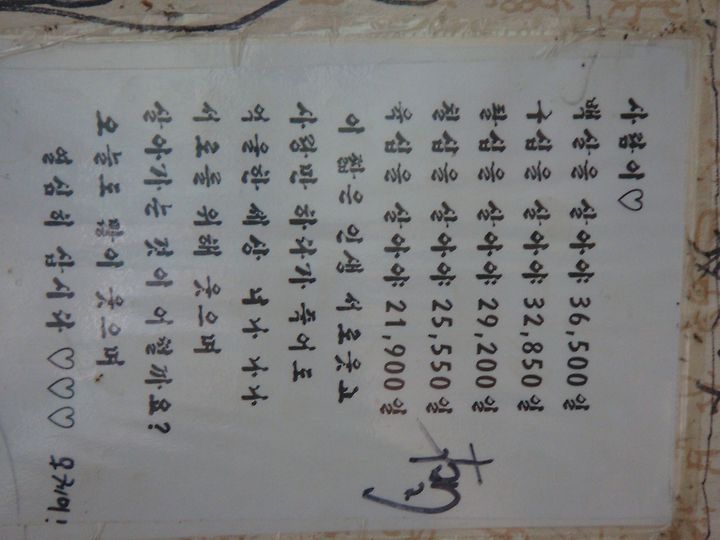 사람이♡
백살을 살아야 36,500일
구십을 살아야 32,850일
팔십을 살아야 29,200일
칠십을 살아야 25,550일
육십을 살아야 21,900일
이 짧은 인생 서로웃고
사랑만 하다가 죽어도
억울한 세상 너나 나나
서로를 위해 웃으며
살아가는 것이 어떨까요?
오늘도 많이 웃으며
열심히 삽시다 ♡♡♡